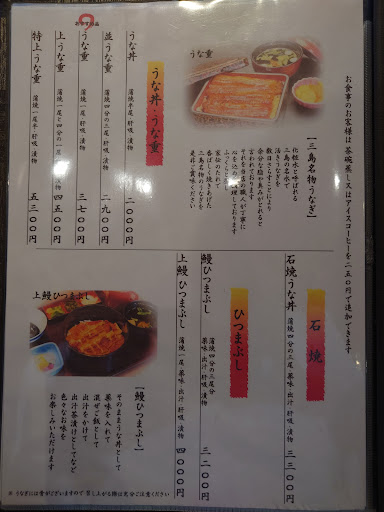 お食事のお客様は茶碗蒸し又はアイスコーヒーを二五〇円で追加できます
うな重
【三島名物うなぎ】
化粧水と呼ばれる
三島の名水で
活きうなぎを
数日さらすことにより
余分な脂や臭みがとれると
言われております
それを当店の職人が丁寧に
心を込め調理しております
ふっくらと
家伝のたれで
香ばしく焼きあげた
三島名物のうなぎを
是非ご賞味ください
うな丼・うな重
うな丼 蒲焼半尾 肝吸 漬物 二〇〇〇円
並うな重 蒲焼四分の三尾 肝吸 漬物 二九〇〇円
おすすめ品
うな重 蒲焼一尾 肝吸 漬物 三七〇〇円
上うな重 蒲焼一尾と四分の一尾 肝吸 漬物 四五〇〇円
特上うな重 蒲焼一尾半 肝吸 漬物 五三〇〇円
石焼
石焼うな丼 蒲焼四分の三尾 薬味 出汁 肝吸 漬物 三三〇〇円
ひつまぶし
鰻ひつまぶし 蒲焼四分の三尾分 薬味 出汁 肝吸 漬物 三二〇〇円
上鰻ひつまぶし 蒲焼一尾 薬味 出汁 肝吸 漬物 四〇〇〇円
上鰻ひつまぶし
【鰻ひつまぶし】
そのままうな丼として
薬味を入れて
混ぜご飯として
出汁をかけて
出汁茶漬けとしてなど
色々なお味を
お楽しみいただけます
※ うなぎには骨がございますので 召し上がる際は充分ご注意ください